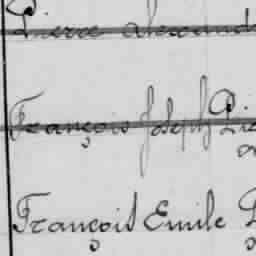 Pierre alexand
François Joseph Pie
François Emile